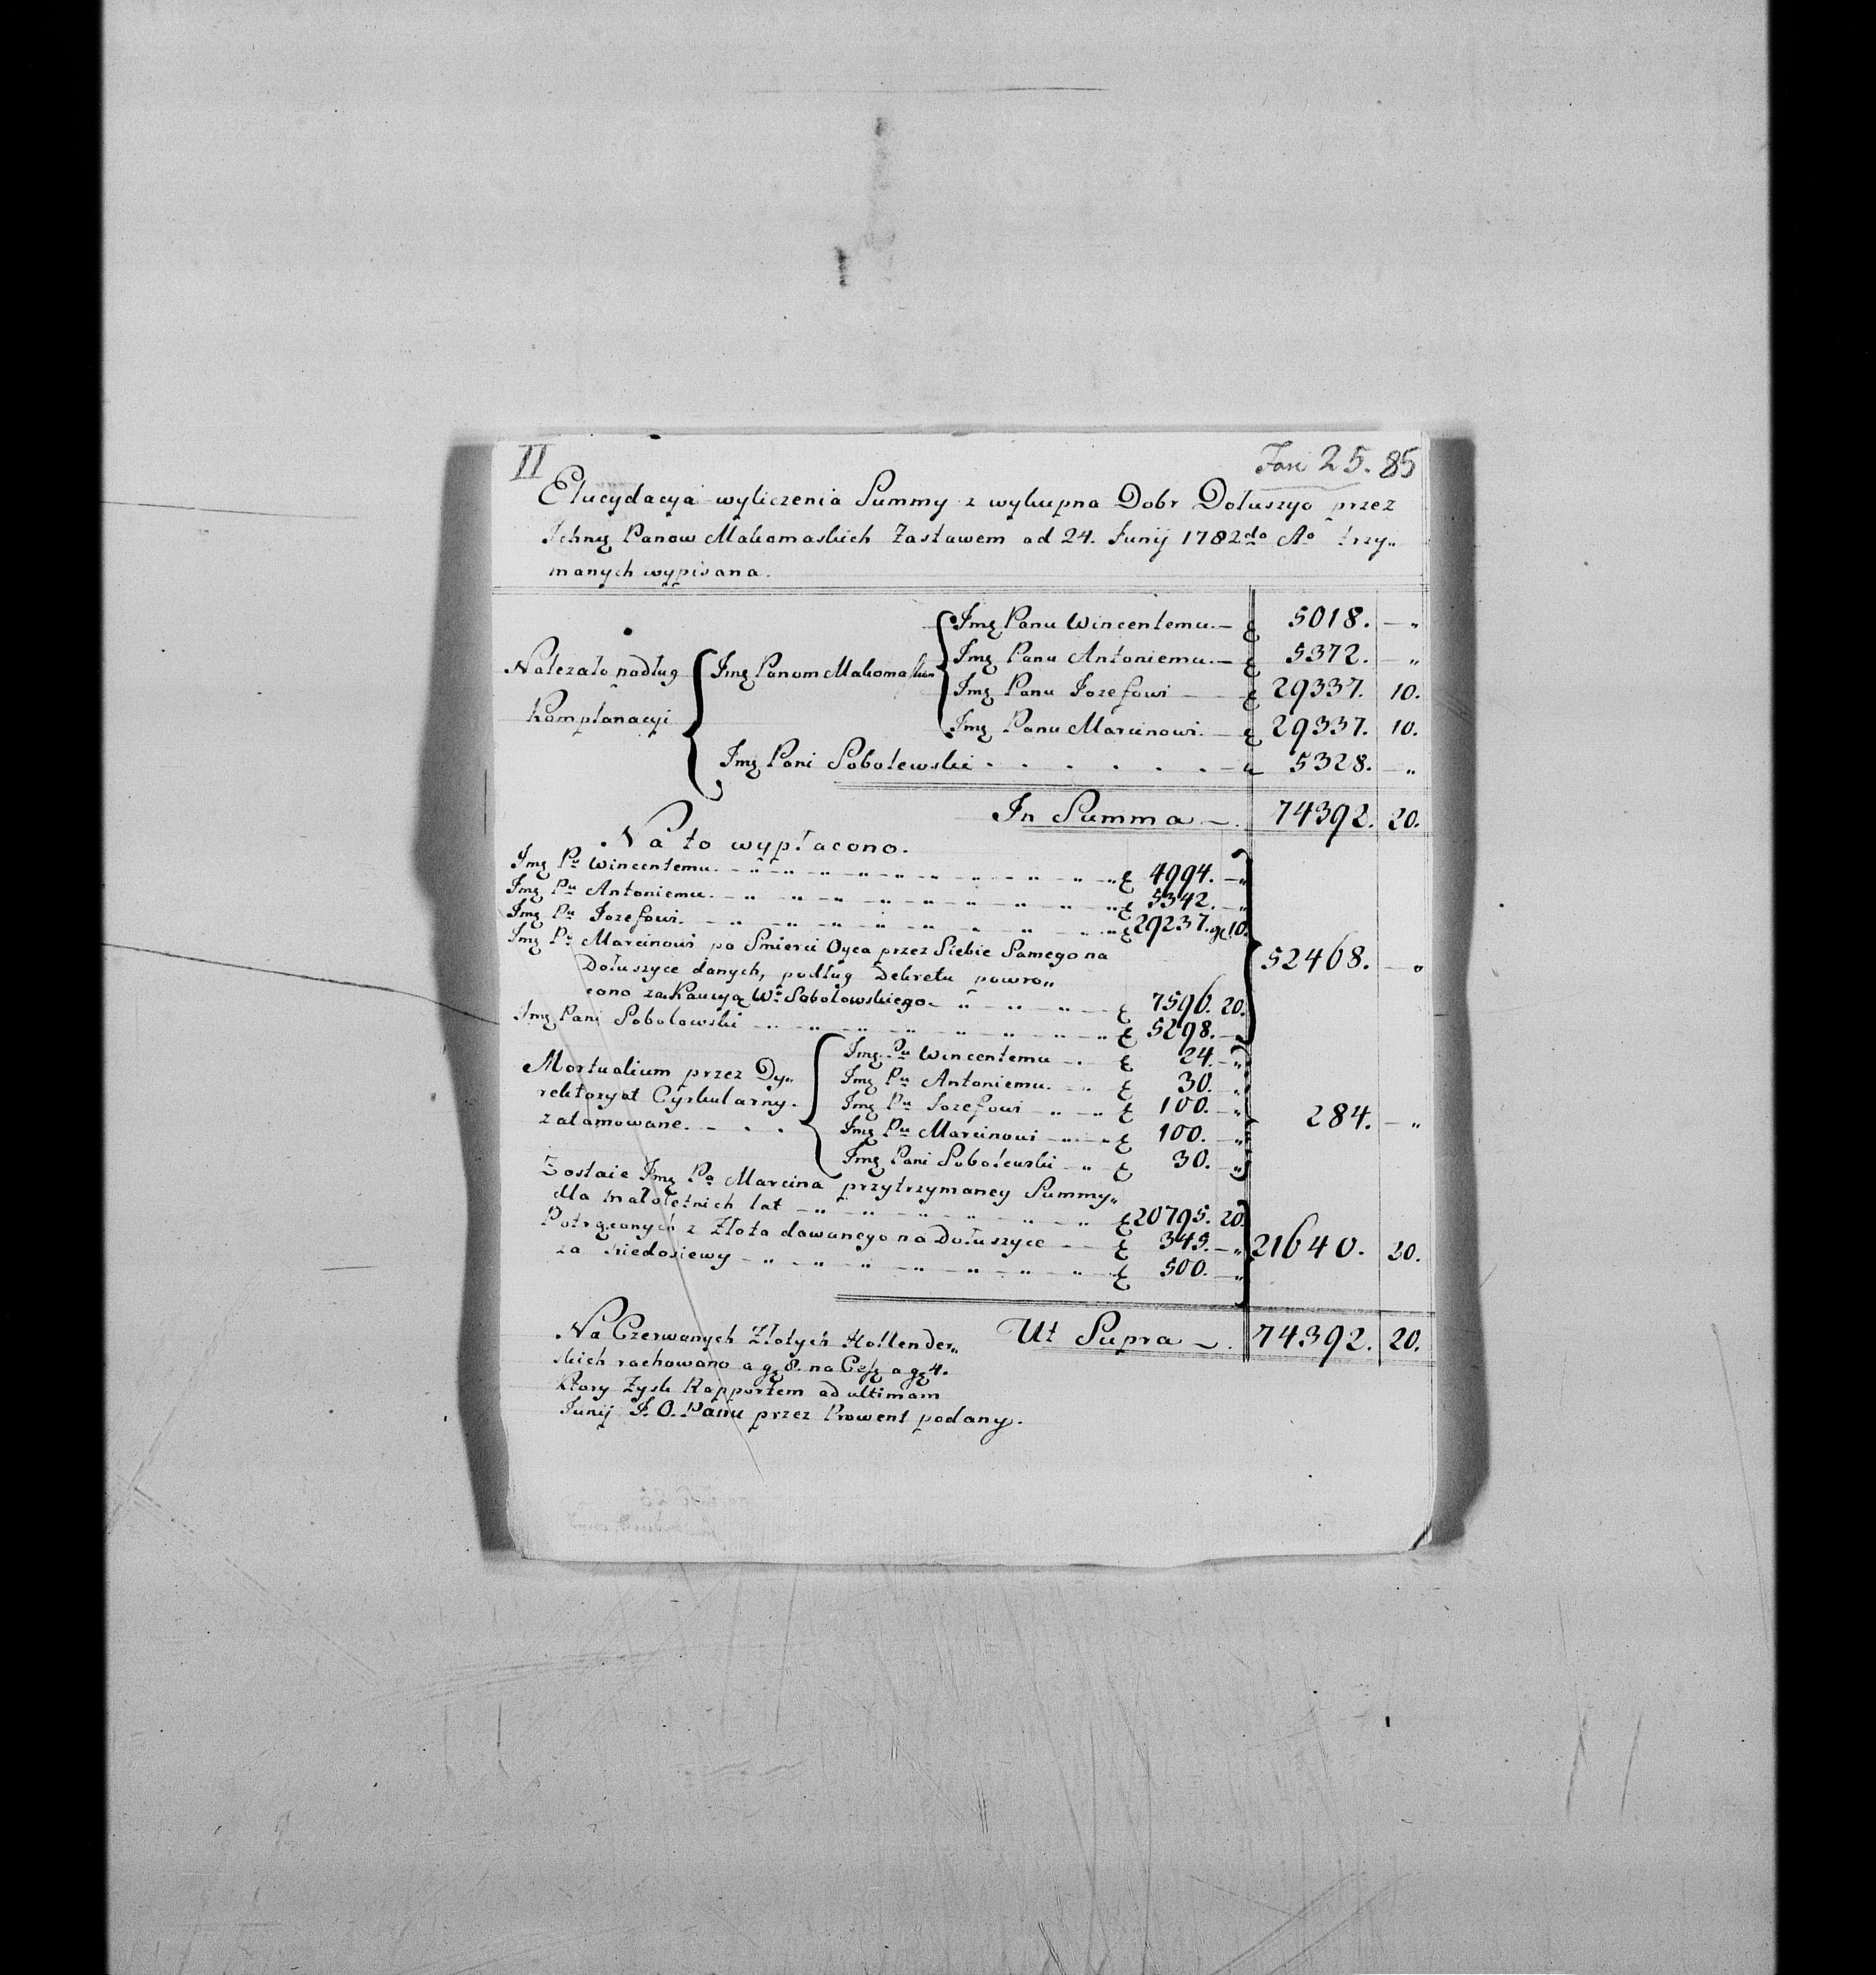 II
Fasc 25. 85
Elucydacya wyliczenia Summy z wykupna Dobr Dołuszyc przez
Ichmę Panow Makomaskich Zastawem ad 24. Junij 1782do Ao trzy„
manych wypisana.
Należało podług Komplanacyi
Jmę Panom Makomaskim
Jmę Panu Wincentemu. — 5018. — „
Jmę Panu Antoniemu. — 5372. — „
Jmę Panu Jozefowi — 29337. 10.
Jmę Panu Marcinowi. — 29337. 10.
Jmę Pani Sobolewski . . . . . . — 5328. — „
In Summa —. 74392. 20.
Na to wypłacono.
Jmę Pu Wincentemu. 4994. — „
Jmę Pu Antoniemu. 5342. — „
Jmę Pu Jozefowi. 29237. gr 10.
Jmę Pu Marcinowi po Smierci Oyca przez Siebie Samego na
Dołuszyce danych, podług Dekretu powro„
cono za Kaucyą Wo Sobolowskiego 7596. 20.
Jmę Pani Sobolowski 5298. — „
52468. — „
Mortualium przez Dy„
rektoryat Cyrkularny.
zatamowane. — . .
Jmę Pu Wincentemu — . 24. — „
Jmę Pu Antoniemu. 30. — „
Jmę Pu Jozefowi 100. — „
Jmę Pu Marcinowi 100. — „
Jmę Pani Sobolewski 30. — „
284. — „
Zostaie Jmę Pa Marcina przytrzymaney Summy„
dla małoletnich lat 20795. 20.
Potrąconych z Złota dawanego na Dołuszyce 345. — „
za Niedosiewy 500. — „
21640. 20.
Ut Supra —. 74392. 20.
Na Czerwonych Złotych Hollender„
skich rachowano a gę 8. na a gę 4.
Ktory Zysk Rapportem ad ultimam
Junij J. O. Panu przez Prowent podany.